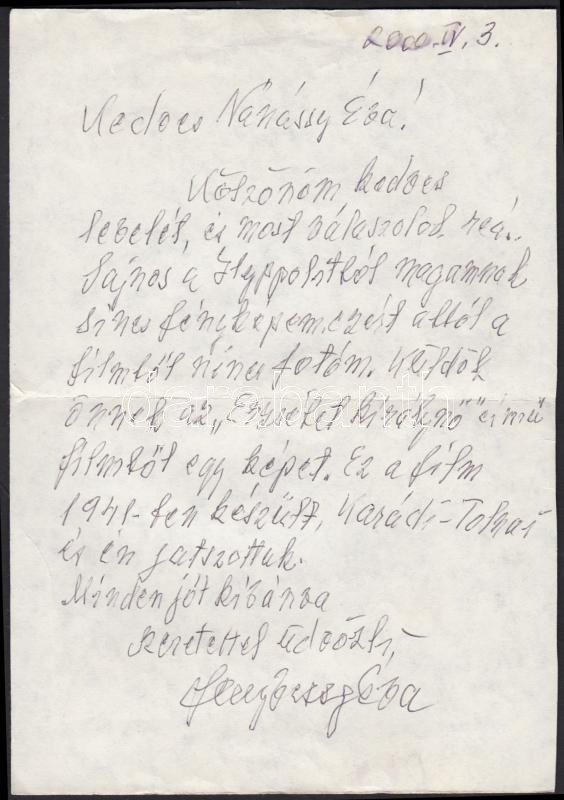 2000. IV. 3.
Kedves Nánássy Éva!
Köszönöm kedves
levelét, és most válaszolok reá.
Sajnos a Hyppolitból magamnak
sincs fényképem, ezért abból a
filmből nincs fotóm. Küldök
önnek az „Erzsébet királynő” című
filmből egy képet. Ez a film
1941-ben készült, Karádi-Tolnai
és én játszottuk.
Minden jót kívánva
szeretettel üdvözli,
Fenyvessy Éva